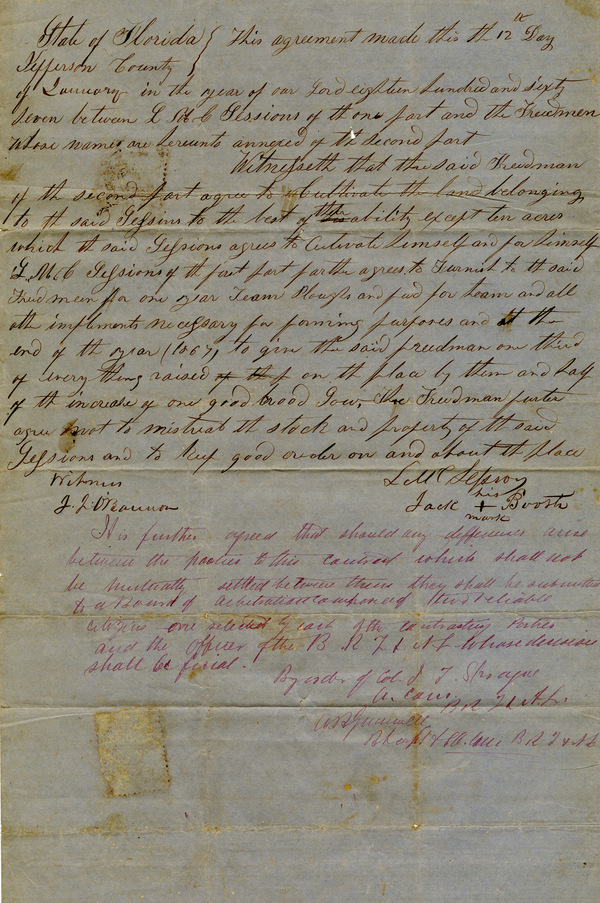 State of Florida { This agreement made this th 12th Day
Jefferson County
of January in the year of our Lord eighteen hundred and sixty
seven between L M C Sessions of th one part and the Freedmen
whose names are hereunto annexed of the second part
Witnesseth that the said Freedman
of the second part agree to cultivate the land belonging
to th said Sessins to the best of ther ability except ten acres
which th said Sessions agrees to Cultivate himself and for himself
L M C Sessions of th first part farther agrees, to Furnish to th said
Freedmein for one year Team Ploughs and feed for team and all
othe impliments necessary for farming purposes and at the
end of th year (1867) to give the said freedman one third
of every thing raised of th f on th place by them and half
of th increase of one good brood Sow, The Freedman furter
agree not to mistreat th stock and property of th said
Sessions and to keep good oreder on and about th place
Witness L M C Session
his
J. J. Jack + Booth
mark
It is further agreed that should any differences arise
between the parties to this contract which shall not
be mutually settled between them they shall be submitted
to a board of arbitration composed of three reliable
citizens one selected by each of the contracting Parties
and the officer of the B R F & A L whose decision
shall be final.
By order of Col. J. T. Sprague
As. Com. B R F & A L.
B R F & A L